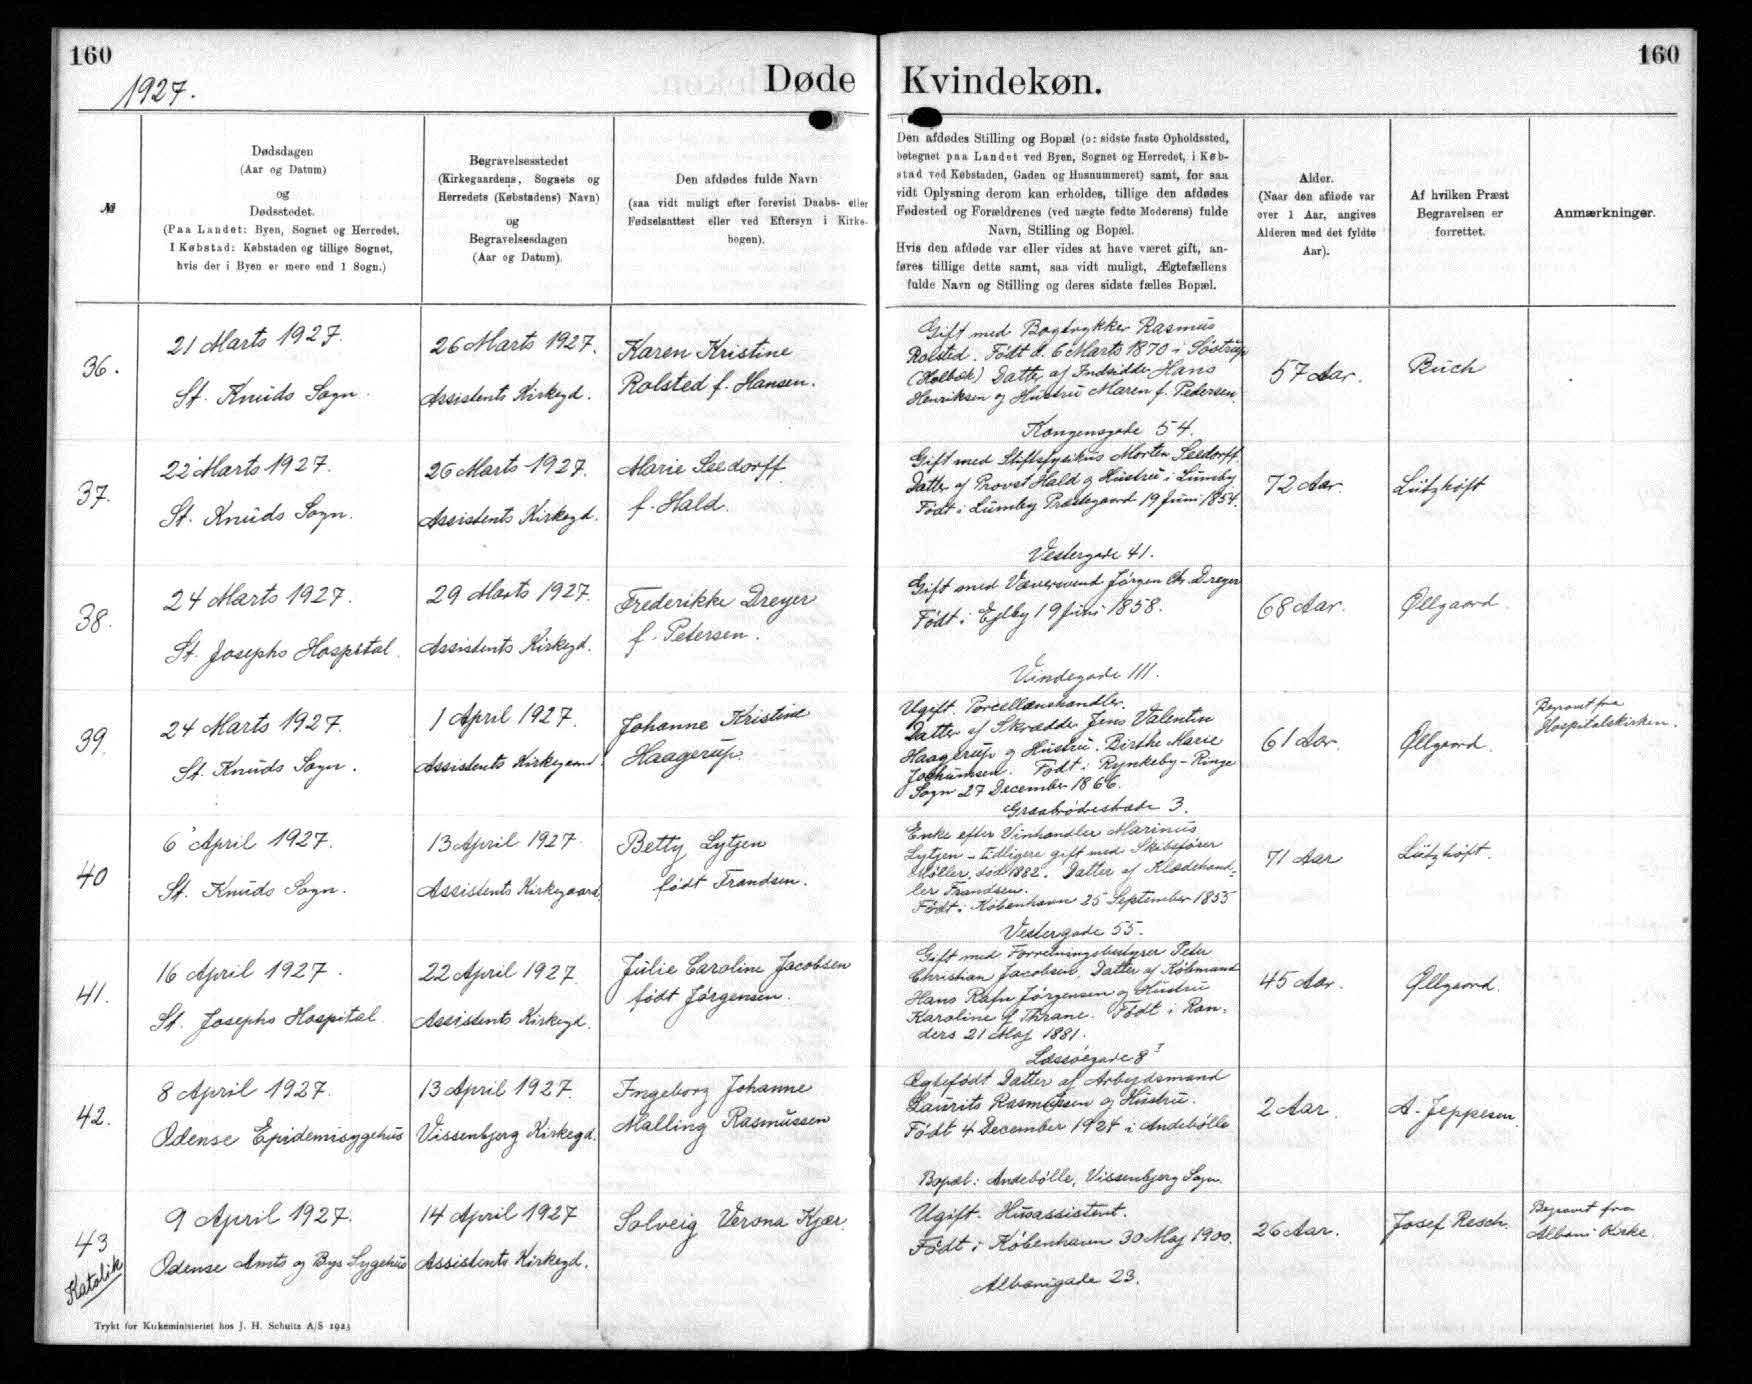 160
160
1927.
Døde
Kvindekøn.
№
Dødsdagen
(Aar og Datum)
og
Dødsstedet.
(Paa Landet: Byen, Sognet og Herredet.
I Købstad: Købstaden og tillige Sognet,
hvis der i Byen er mere end 1 Sogn.)
Begravelsesstedet
(Kirkegaardens, Sognets og
Herredets (Købstadens) Navn)
og
Begravelsesdagen
(Aar og Datum).
Den afdødes fulde Navn
(saa vidt muligt efter forevist Daabs- eller
Fødselsattest eller ved Eftersyn i Kirke-
bogen).
Den afdødes Stilling og Bopæl (ɔ: sidste faste Opholdssted,
betegnet paa Landet ved Byen, Sognet og Herredet, i Køb-
stad ved Købstaden, Gaden og Husnummeret) samt, for saa
vidt Oplysning derom kan erholdes, tillige den afdødes
Fødested og Forældrenes (ved uægte fødte Moderens) fulde
Navn, Stilling og Bopæl.
Hvis den afdøde var eller vides at have været gift, an-
føres tillige dette samt, saa vidt muligt, Ægtefællens
fulde Navn og Stilling og deres sidste fælles Bopæl.
Alder.
(Naar den afdøde var
over 1 Aar, angives
Alderen med det fyldte
Aar).
Af hvilken Præst
Begravelsen er
forrettet.
Anmærkninger.
36.
21 Marts 1927.
St. Knuds Sogn.
26 Marts 1927.
Assistents Kirkegd.
Karen Kristine
Rolsted f. Hansen.
Gift med Bogtrykker Rasmus
Rolsted. Født d. 6 Marts 1870 i Søstrup
(Holbæk) Datter af Indsidder Hans
Henriksen og Hustru Maren f. Pedersen.
Kongensgade 54.
57 Aar.
Ruch
37.
22 Marts 1927.
St. Knuds Sogn.
26 Marts 1927.
Assistents Kirkegd.
Marie Seedorff
f. Hald.
Gift med Stiftsfysikus Morten Seedorff.
Datter af Provst Hald og Hustru i Lumby
Født i Lumby Præstegaard 19 Juni 1854.
Vestergade 41.
72 Aar.
Lützhøft
38.
24 Marts 1927.
St. Josephs Hospital.
29 Marts 1927.
Assistents Kirkegd.
Frederikke Dreyer
f. Petersen.
Gift med Væversvend Jørgen Chr. Dreyer
Født i Ejlby 19 Juni 1858.
Vindegade 111.
68 Aar.
Øllgaard.
39.
24 Marts 1927.
St. Knuds Sogn.
1 April 1927.
Assistents Kirkegaard.
Johanne Kristine
Haagerup.
Ugift. Porcellænshandler.
Datter af Skrædder Jens Valentin
Haagerup og Hustru. Birthe Marie
Jochumsen. Født i Rynkeby-Ringe
Sogn 27 December 1866.
Graabrødrestræde 3.
61 Aar.
Øllgaard.
Begravet fra
Hospitalskirken.
40
6 April 1927.
St. Knuds Sogn.
13 April 1927.
Assistents Kirkegaard.
Betty Lytjen
født Frandsen.
Enke efter Vinhandler Marinus
Lytjen - tidligere gift med Skibsfører
Møller, død 1882. Datter af Klædehand-
ler Frandsen.
Født i København 25 September 1855
Vestergade 55.
71 Aar
Lützhøft.
41.
16 April 1927.
St. Josephs Hospital
22 April 1927.
Assistents Kirkegd.
Julie Caroline Jacobsen
født Jørgensen.
Gift med Forretningsbestyrer Peter
Christian Jacobsen. Datter af Købmand
Hans Rafn Jørgensen og Hustru
Karoline f Thrane. Født i Ran-
ders 21 Maj 1881.
Læssøegade 8 I
45 Aar.
Øllgaard.
42.
8 April 1927.
Odense Epidemisygehus
13 April 1927.
Vissenbjerg Kirkegd.
Ingeborg Johanne
Malling Rasmussen
Ægtefødt Datter af Arbejdsmand
Laurits Rasmussen og Hustru.
Født 4 December 1924 i Andebølle
Bopæl: Andebølle, Vissenbjerg Sogn.
2 Aar.
A. Jeppesen.
43
Katolik
9 April 1927.
Odense Amts og Bys Sygehus
14 April 1927
Assistents Kirkegd.
Solveig Verona Kjær.
Ugift. Husassistent.
Født i København 30 Maj 1900.
Albanigade 23.
26 Aar.
Josef Resch.
Begravet fra
Albani Kirke
Trykt for Kirkeministeriet hos J. H. Schultz A/S 1923